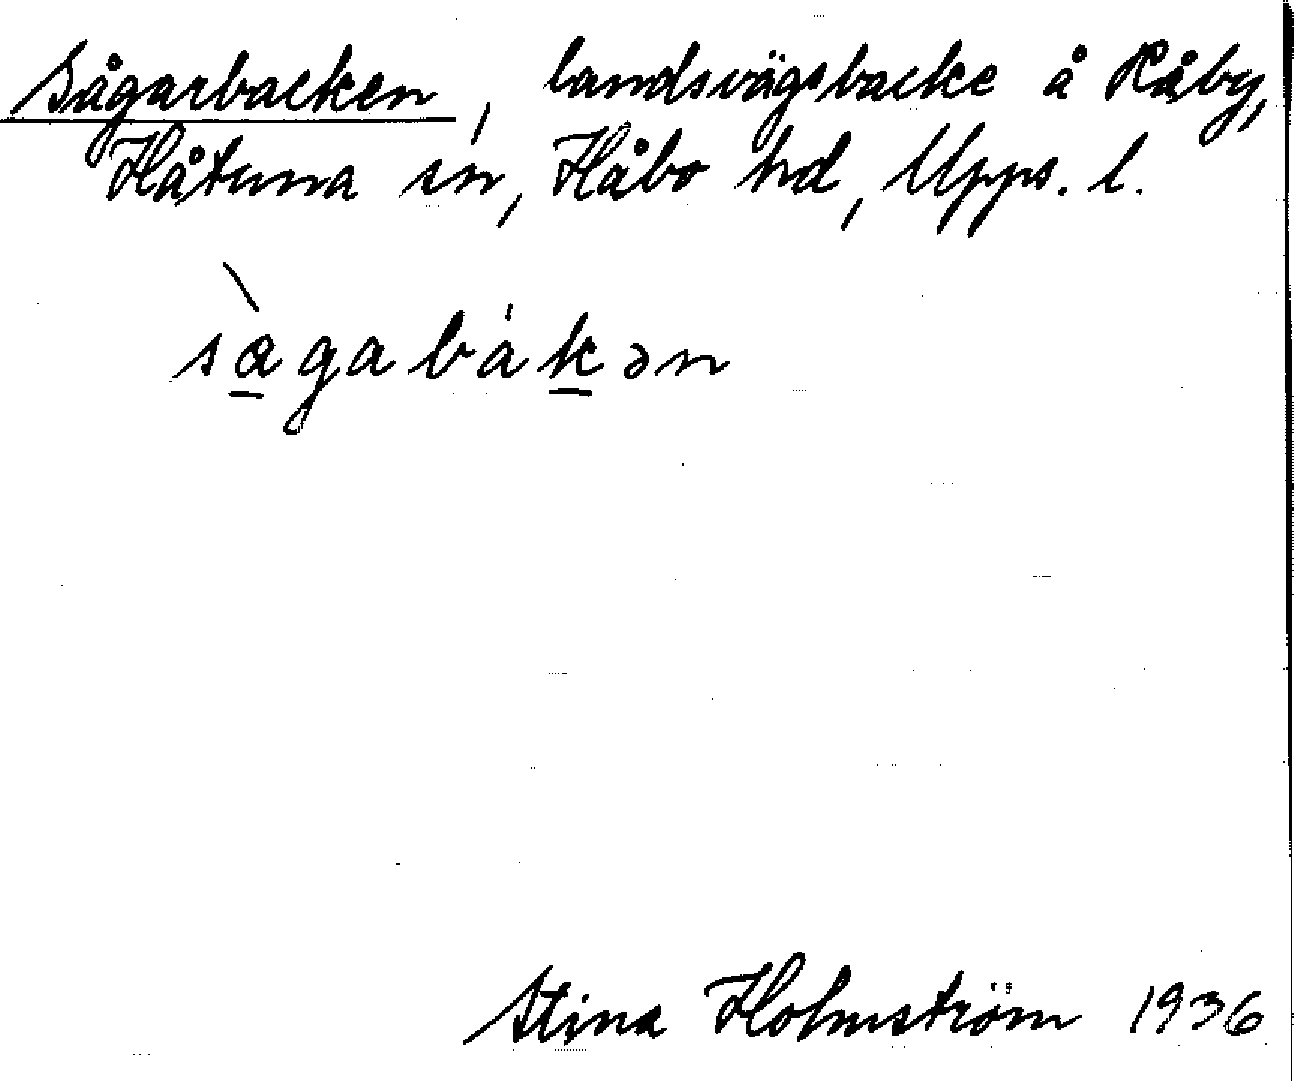 Sågarbacken, landsvägsbacke å Råby,
Håtuna sn, Håbo hd, Upps. l.
sàgabákən
Stina Holmström 1936